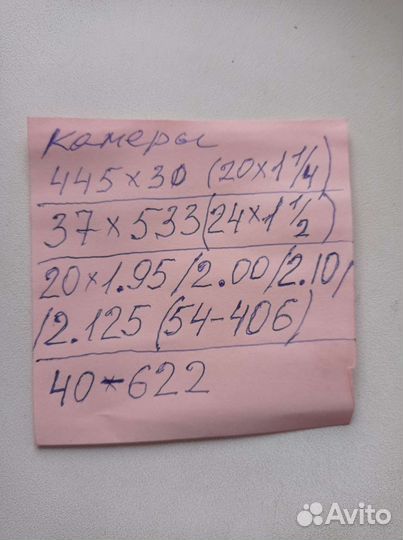 Камеры
445×30 (20×1 1/4)
37×533(24×1 1/2)
20×1.95/2.00/2.10/
/2.125 (54-406)
40-622
Avito